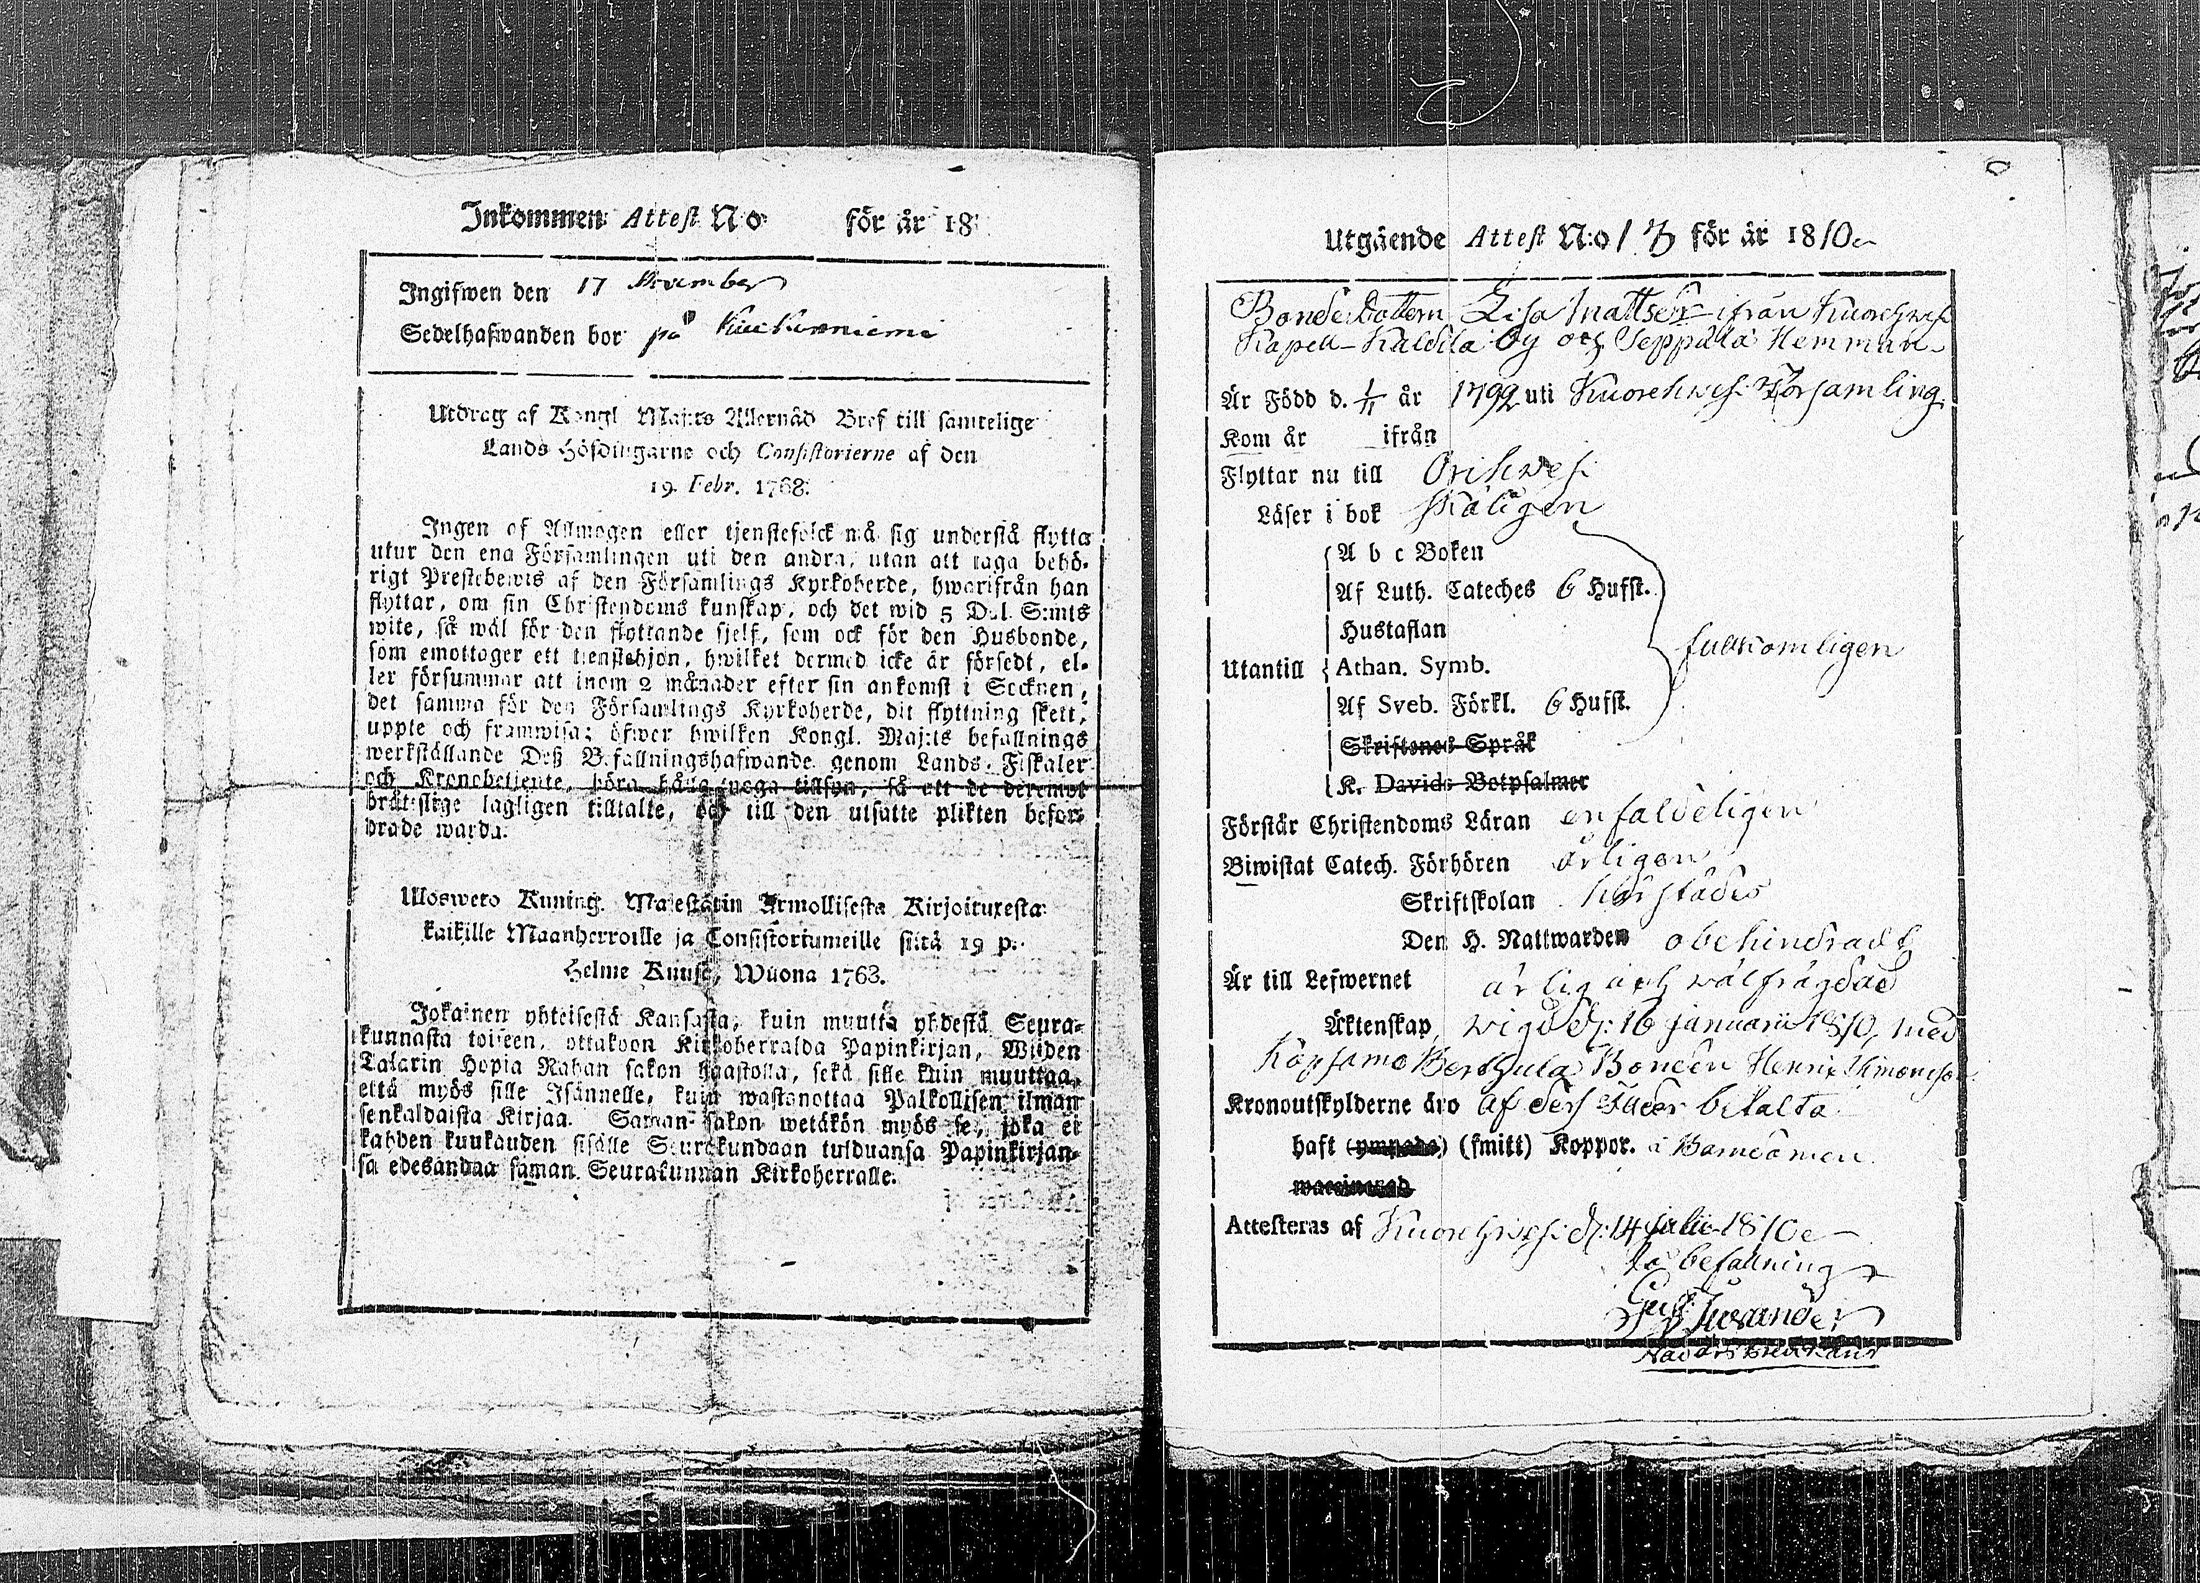 Inkommen Attest No för år 18
Ingifwen den 17 November
Sedelhafwanden bor på
Utdrag af Kongl Maj:ts Allernåd Bref till samtelige
Lands Höfdingarne och Consistorierne af den
19. Febr. 1768.
Ingen af Allmogen eller tjenstefolck må sig understå flytta
utur den ena Församlingen uti den andra, utan att taga behö-
rigt Prestebewis af den Församlings Kyrkoherde, hwarifrån han
flyttar, om sin Christendoms kunskap, och det wid 5 Dal. S:mts
wite, så wäl för den flyttande sjelf, som ock för den Husbonde,
som emottager ett tienstehjon, hwilket dermed icke är försedt, el-
ler försummar att inom 2 månader efter sin ankomst i Socknen,
det samma för den Församlings Kyrkoherde, dit flyttning skett,
uppte och framwisa: öfwer hwilken Kongl. Maj:ts befallnings
werkställande Deß Befallningshafwande genom Lands-Fiskaler
och Kronobetjente, böra hålla noga tillsyn, så att de deremot
bråtslige lagligen tilltalte, och till den utsatte plikten befor-
drade warda.
Uloswero Kuning. Majestätin Armollisesta Kirjoituxesta
kaikille Maanherroille ja Consistoriumeille siitä 19 p:
Helme Kuusa, Wuona 1763.
Jokainen yhteisestä Kansasta, kuin muutta yhdestä Seura-
kunnasta toiseen, ottakoon Kirkoherralda Papinkirjan, Wiiden
Talarin Hopia Rahan sakon haastolla, sekä sille kuin muuttaa,
että myös sille Isännelle, kuin wastanottaa Palkollisen ilman
senkaldaista Kirjaa. Saman sakon wetäkön myös se, joka ei
kahden kuukauden sisälle Seurakundaan tulduansa Papinkirjan-
sa edesandaa saman Seurakunnan Kirkoherralle.
Utgående Attest N:o 13 för år 1810
Bondedottern Lisa Mattsdr ifrån Kuorehwesi
Kapell Kaldila By och Seppälä Hemman
Är Född d. 1/11 år 1792 uti Kuorehwesi Församling
Kom år ifrån
Flyttar nu till Orihwesi
Läser i bok skäligen
A b c Boken
Af Luth. Cateches 6 Hufst.
Hustaflan
fullkomligen
Utantill Athan. Symb.
Af Sveb. Förkl. 6 Hufst.
Skriftenes Språk
K. Davids Botpsalmer
Förstår Christendoms Läran enfaldeligen
Biwistat Catech. Förhören årligen
Skriftskolan härstädes
Den H. Nattwarden obehindradt
Är till Lefwernet ärlig och wälfrägdad
Äktenskap, wigd d: 16 januarii 1810, med
Bonden Henric Simonsson
Kronoutskylderne äro af dess Fader betalta
haft (ympade) (smitt) Koppor. i Barndomen
waccinerad
Attesteras af Kuorehwesi d: 14 julii 1810
På befallning